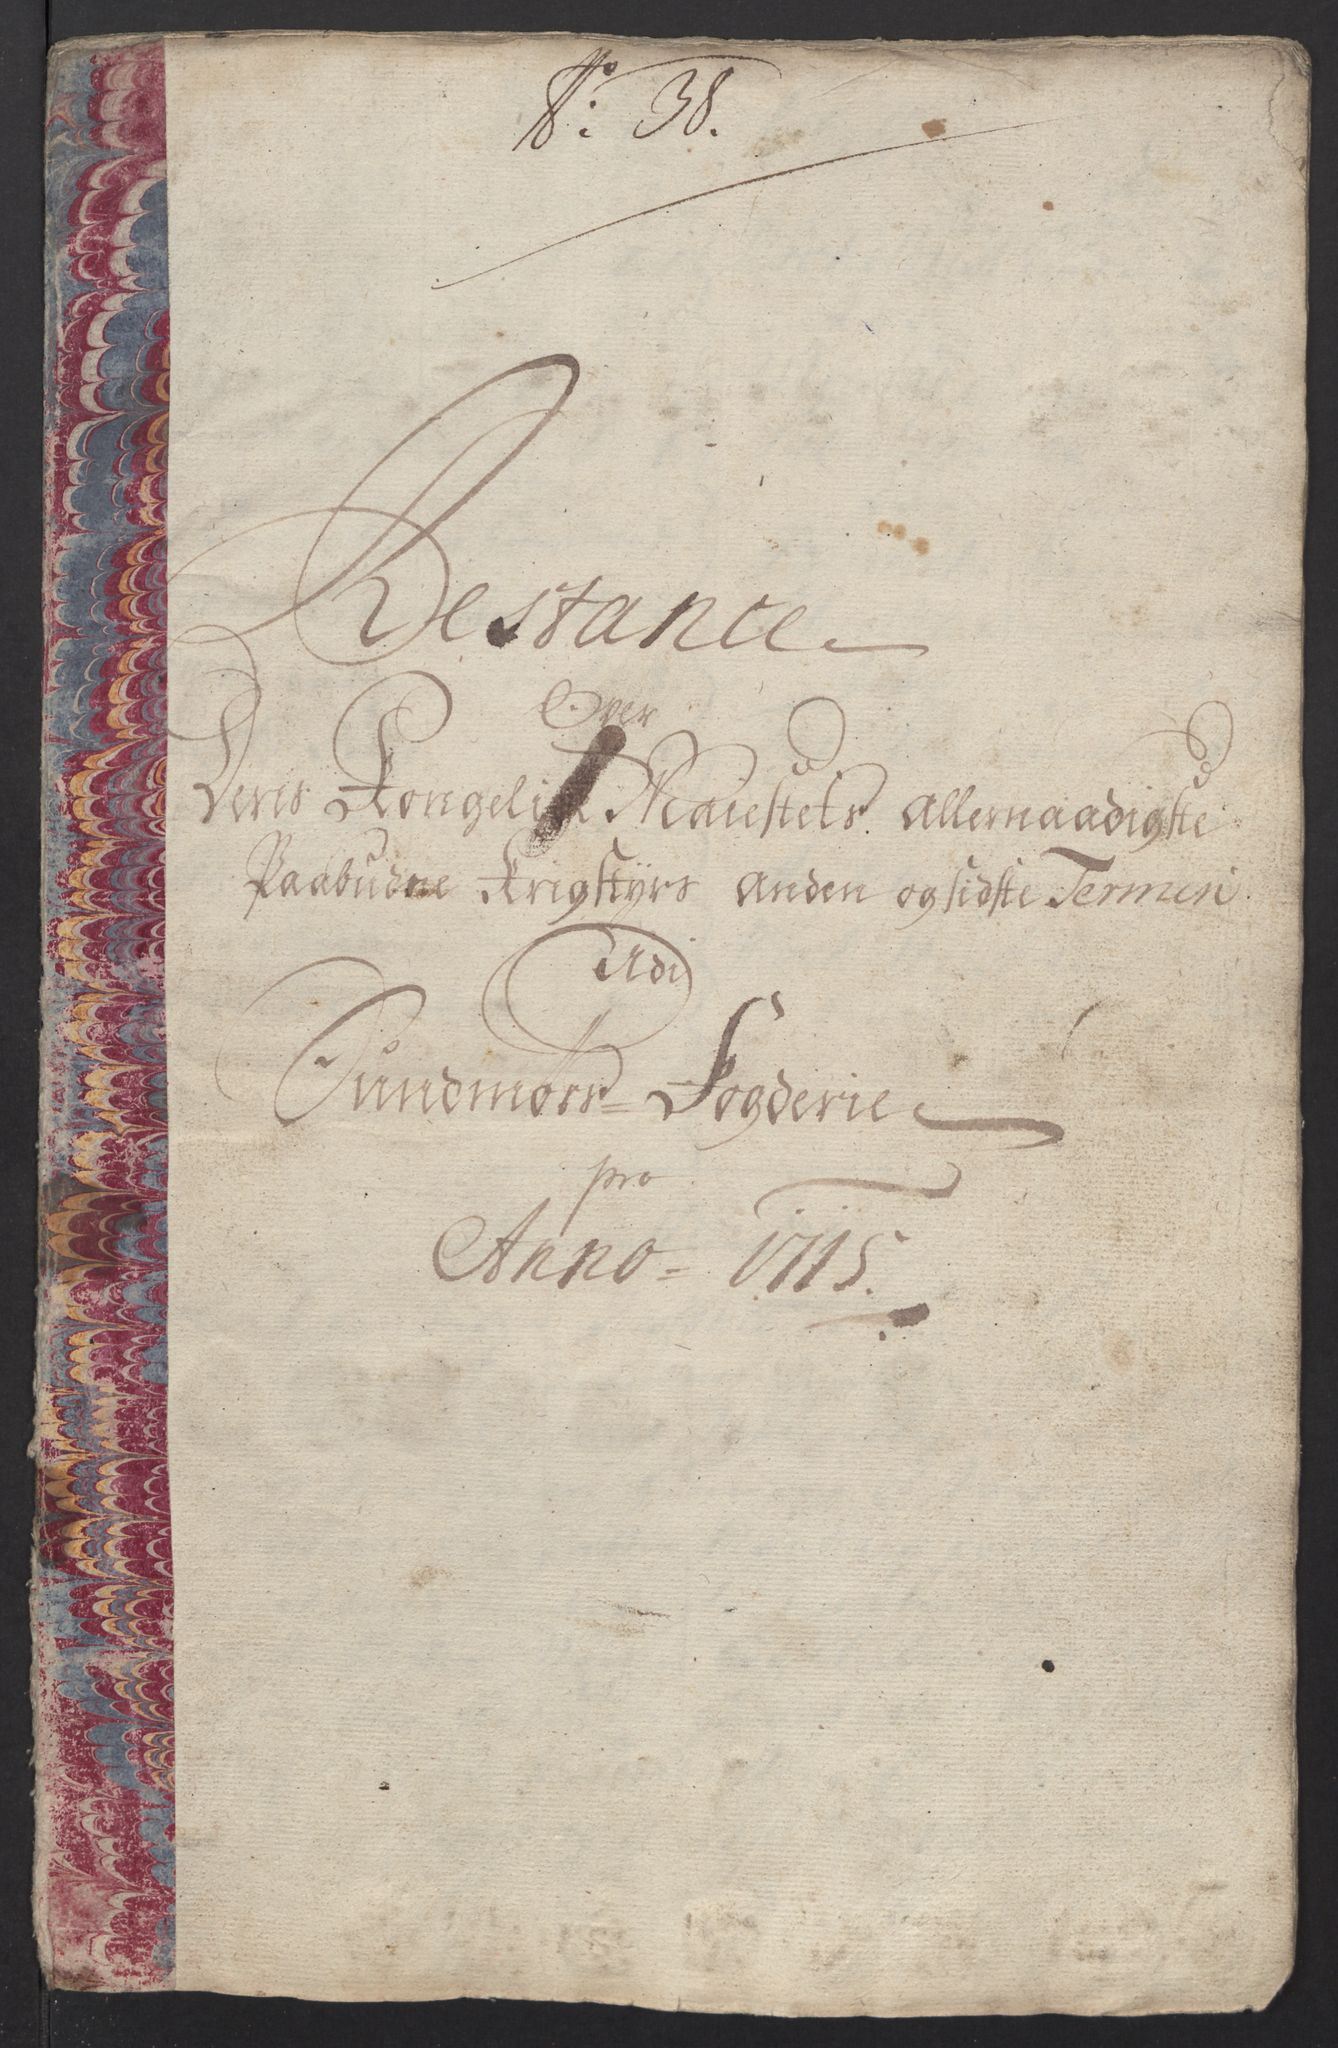 No: 38.
Restance
Over
Deris Kongelig Maiestets allernaadigste
Paabudne Krigstyrs anden og sidste Termin
Udi
Sundmørs= Fogderie
pro
Anno= 1715.